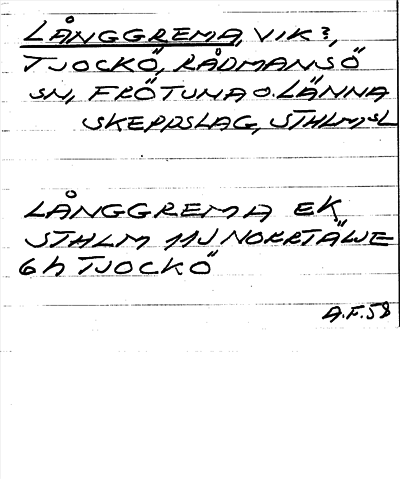 LÅNGGREMA, VIK?,
TJOCKÖ, RÅDMANSÖ
SN, FRÖTUNA O. LÄNNA
SKEPPSLAG, STHLM,SL
LÅNGGREMA EK,
STHLM 11J NORRTÄLJE
6h TJOCKÖ
A.F.58